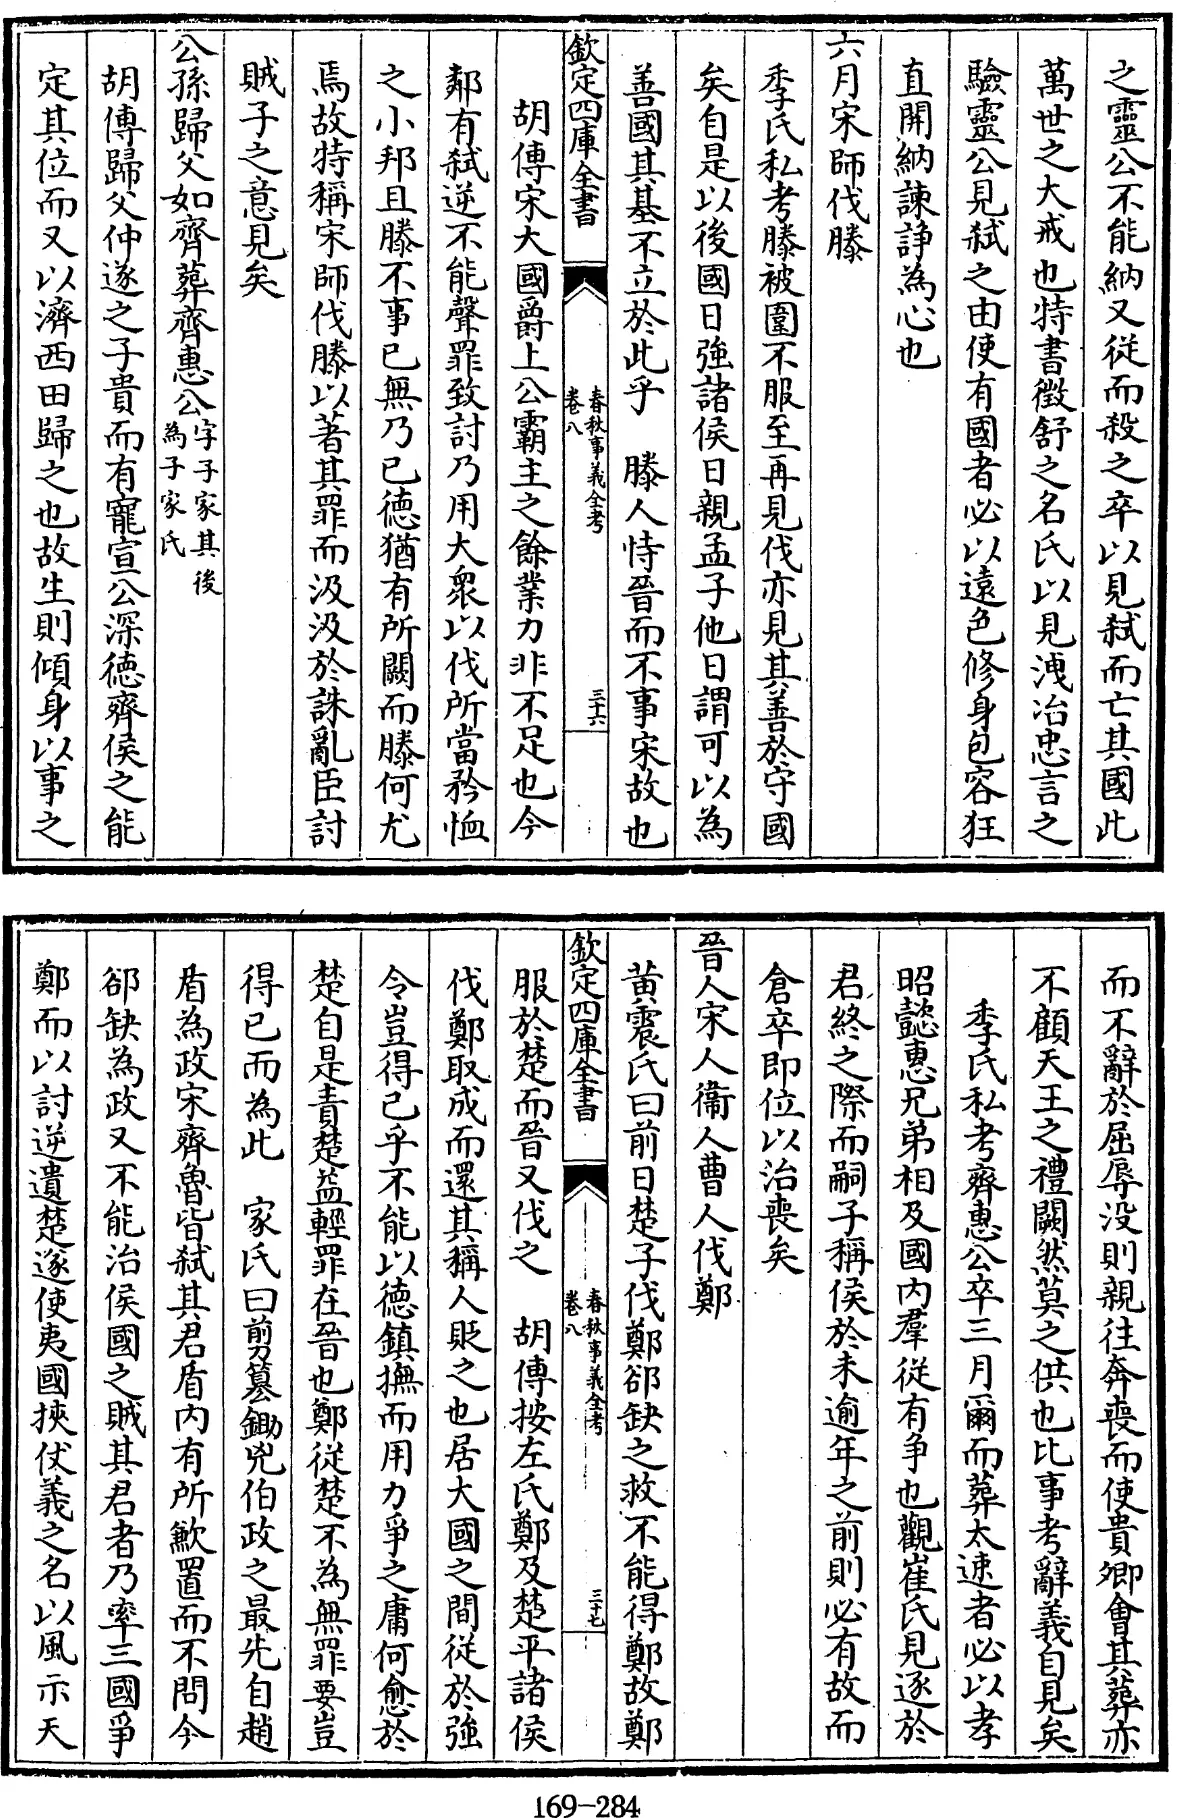 之靈公不能納又從而殺之卒以見弑而亡其國此
萬世之大戒也特書徴舒之名氏以見洩冶忠言之
驗靈公見弑之由使有國者必以遠色修身包容狂
直開納諫諍為心也
六月宋師伐滕
季氏私考滕被圍不服至再見伐亦見其善於守國
矣自是以後國日強諸侯日親孟子他日謂可以為
善國其基不立於此乎　滕人恃晉而不事宋故也
欽定四庫全書
春秋事義全考
卷八
三十六
胡傳宋大國爵上公霸主之餘業力非不足也今
鄰有弑逆不能聲罪致討乃用大衆以伐所當矜恤
之小邦且滕不事已無乃已徳猶有所闕而滕何尤
焉故特稱宋師伐滕以著其罪而汲汲於誅亂臣討
賊子之意見矣
公孫歸父如齊葬齊惠公字子家其後
為子家氏
胡傳歸父仲遂之子貴而有寵宣公深徳齊侯之能
定其位而又以濟西田歸之也故生則傾身以事之
而不辭於屈辱沒則親往奔喪而使貴卿會其葬亦
不顧天王之禮闕然莫之供也比事考辭義自見矣
季氏私考齊惠公卒三月爾而葬太速者必以孝
昭懿惠兄弟相及國内羣從有争也觀崔氏見逐於
君終之際而嗣子稱侯於未逾年之前則必有故而
倉卒即位以治喪矣
晉人宋人衞人曹人伐鄭
黄震氏曰前日楚子伐鄭郤缺之救不能得鄭故鄭
欽定四庫全書
春秋事義全考
卷八
三十七
服於楚而晉又伐之　胡傳按左氏鄭及楚平諸侯
伐鄭取成而還其稱人貶之也居大國之間從於強
令豈得已乎不能以徳鎮撫而用力爭之庸何愈於
楚自是責楚益輕罪在晉也鄭從楚不為無罪要豈
得已而為此　家氏曰剪簒鋤兇伯政之最先自趙
盾為政宋齊魯皆弑其君盾内有所歉置而不問今
郤缺為政又不能治侯國之賊其君者乃率三國爭
鄭而以討逆遺楚遂使夷國挾仗義之名以風示天
169-284